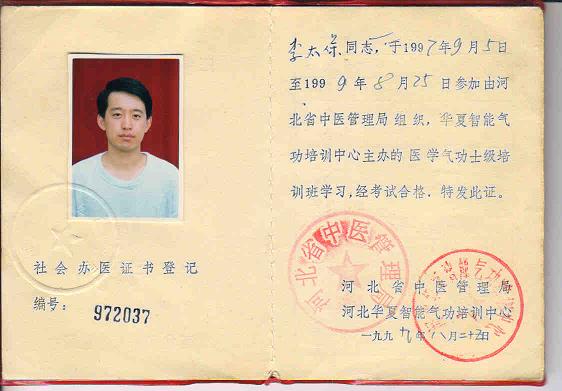 社会办医证书登记
编号: 972037
李太保同志,于1997年9月5日
至1999年8月25日参加由河
北省中医管理局组织,华夏智能气
功培训中心主办的医学气功士级培
训班学习,经考试合格.特发此证。
河北省中医管理局
河北省中医管理局
河北华夏智能气功培训中心
一九九九年八月二十五日